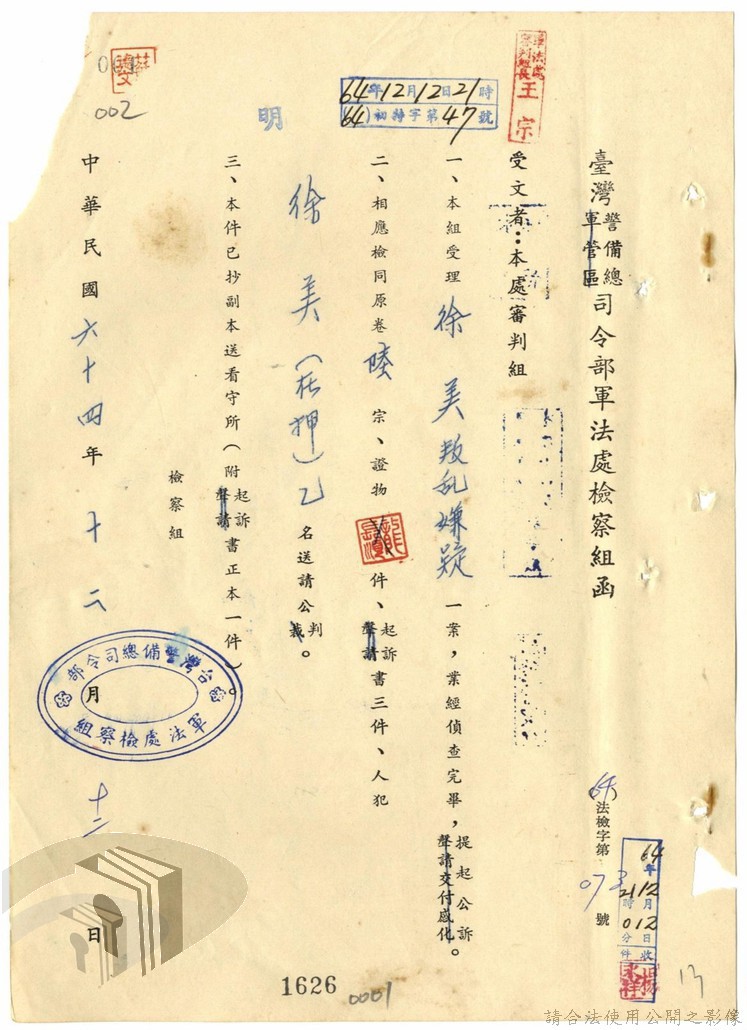 臺灣警備總軍管區司令部軍法處檢察組函
64法檢字第073號
64年12月12日收
21時01分 件
軍法處審判組長王宗
受文者：本處審判組
64年12月12日21時
(64)初特字第47號
一、本組受理徐美叛乱嫌疑一案，業經偵查完畢，提起公訴聲請交付感化。
二、相應檢同原卷陸宗、證物 件、起訴聲請書三件、人犯
徐美(在押)乙名送請公判裁。
明
三、本件已抄副本送看守所(附起訴聲請書正本一件)。
檢察組
台灣警備總司令部
軍法處檢察組
中華民國六十四年十二月十二日
002
1626
0001
13
請合法使用公開之影像